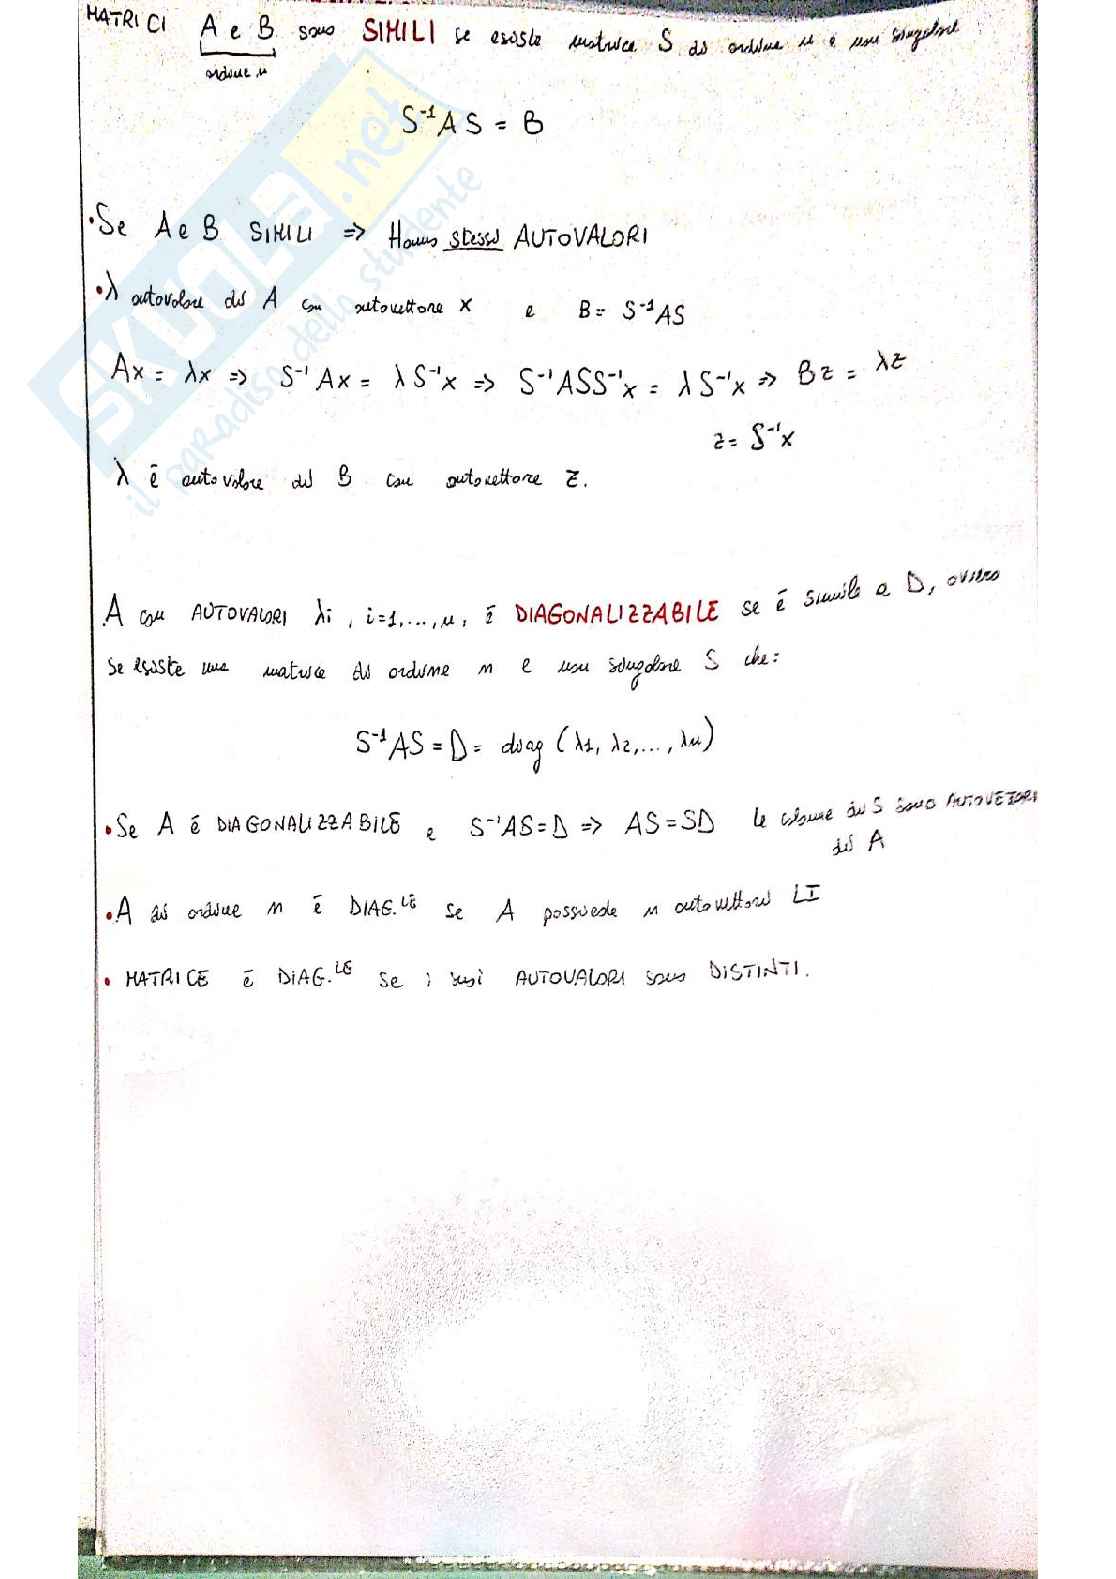 MATRICI A e B sono SIMILI se esiste matrice S di ordine n e non singolare :
ordine n
S⁻¹AS = B
• Se A e B SIMILI => Hanno stessi AUTOVALORI
• λ autovalore di A con autovettore x e B = S⁻¹AS
Ax = λx => S⁻¹Ax = λS⁻¹x => S⁻¹ASS⁻¹x = λS⁻¹x => Bz = λz
z = S⁻¹x
λ è autovalore di B con autovettore z.
A con AUTOVALORI λi, i=1,...,n, è DIAGONALIZZABILE se è simile a D, ovvero
se esiste una matrice di ordine n e non singolare S che:
S⁻¹AS = D = diag (λ1, λ2,..., λn)
• Se A è DIAGONALIZZABILE e S⁻¹AS = D => AS = SD le colonne di S sono AUTOVETTORI
di A
• A di ordine n è DIAG.LE se A possiede n autovettori LI
• MATRICE è DIAG.LE se i suoi AUTOVALORI sono DISTINTI.
SKUOLA.net
il paradiso dello studente